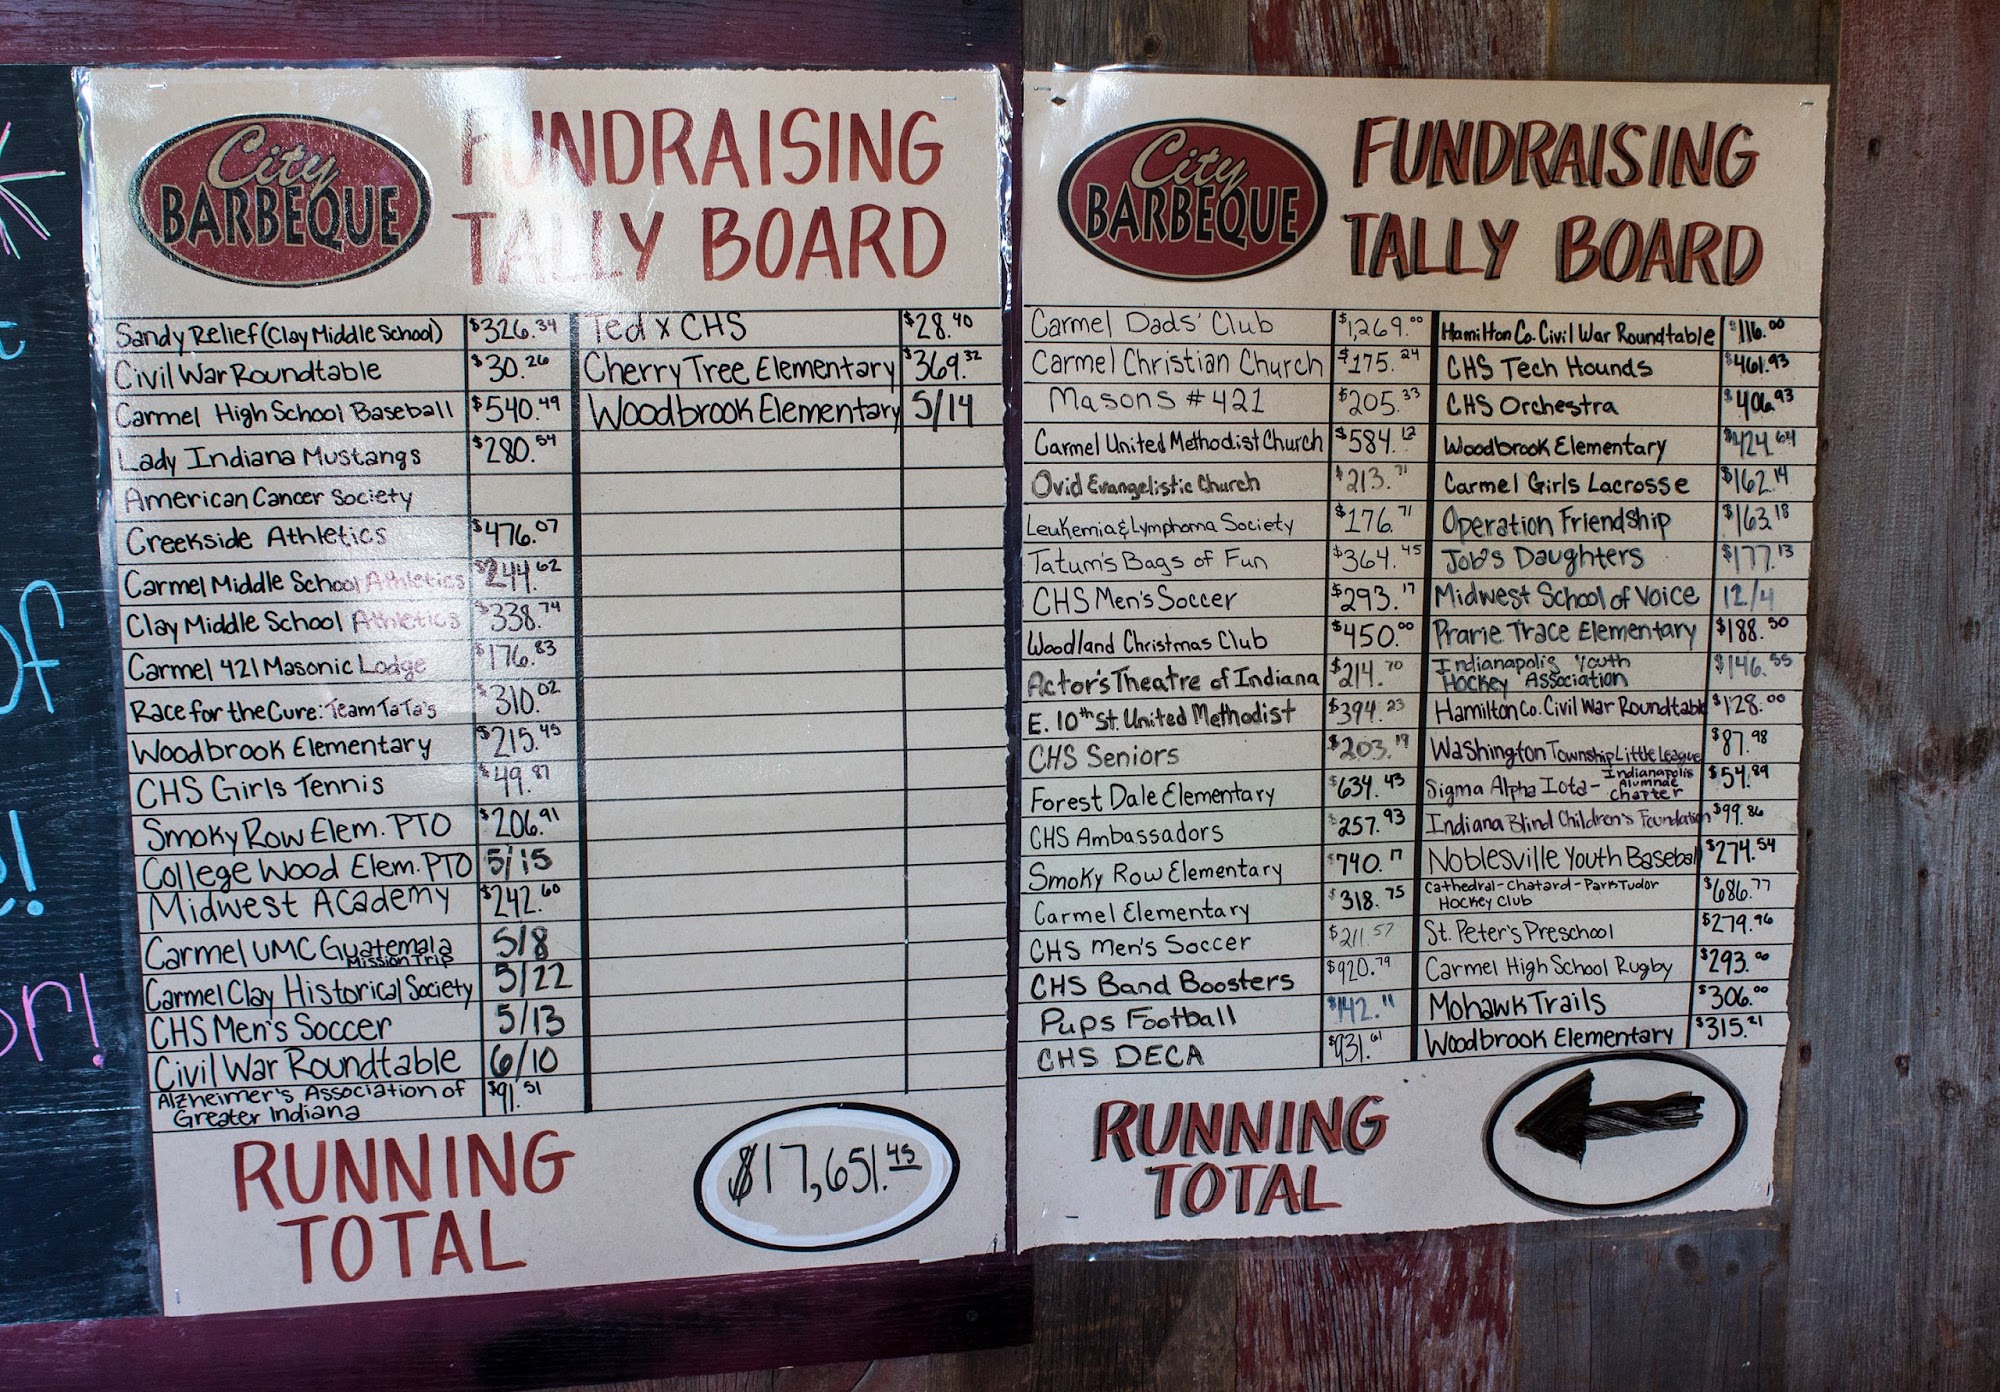 City
BARBEQUE
FUNDRAISING
TALLY BOARD
Sandy Relief (Clay Middle School) $326.34
Civil War Roundtable $30.26
Carmel High School Baseball $540.49
Lady Indiana Mustangs $280.54
American Cancer Society
Creekside Athletics $476.07
Carmel Middle School Athletics $244.62
Clay Middle School Athletics $338.74
Carmel 421 Masonic Lodge $176.83
Race for the Cure: Team TaTa's $310.02
Woodbrook Elementary $215.45
CHS Girls Tennis $49.87
Smoky Row Elem. PTO $206.91
College Wood Elem. PTO 5/15
Midwest Academy $242.60
Carmel UMC Guatemala
Mission Trip 5/8
Carmel Clay Historical Society 5/22
CHS Men's Soccer 5/13
Civil War Roundtable 6/10
Alzheimer's Association of
Greater Indiana $91.51
Ted x CHS $28.40
Cherry Tree Elementary $369.32
Woodbrook Elementary 5/14
RUNNING
TOTAL
$17,651.45
City
BARBEQUE
FUNDRAISING
TALLY BOARD
Carmel Dads' Club $1,269.00
Carmel Christian Church $175.24
Masons #421 $205.33
Carmel United Methodist Church $584.12
Ovid Evangelistic Church $213.71
Leukemia & Lymphoma Society $176.71
Tatum's Bags of Fun $364.45
CHS Men's Soccer $293.17
Woodland Christmas Club $450.00
Actor's Theatre of Indiana $214.70
E. 10th St. United Methodist $394.23
CHS Seniors $203.19
Forest Dale Elementary $634.43
CHS Ambassadors $257.93
Smoky Row Elementary $740.17
Carmel Elementary $318.75
CHS Men's Soccer $211.57
CHS Band Boosters $920.79
Pups Football $142.11
CHS DECA $931.61
Hamilton Co. Civil War Roundtable $116.00
CHS Tech Hounds $461.93
CHS Orchestra $406.93
Woodbrook Elementary $424.64
Carmel Girls Lacrosse $162.14
Operation Friendship $163.18
Job's Daughters $177.13
Midwest School of Voice 12/4
Prarie Trace Elementary $188.50
Indianapolis Youth
Hockey Association $146.55
Hamilton Co. Civil War Roundtable $128.00
Washington Township Little League $87.98
Sigma Alpha Iota - Indianapolis
Alumnae
Chapter $54.89
Indiana Blind Children's Foundation $99.86
Noblesville Youth Baseball $274.54
Cathedral-Chatard-Park Tudor
Hockey Club $686.77
St. Peter's Preschool $279.96
Carmel High School Rugby $293.00
Mohawk Trails $306.00
Woodbrook Elementary $315.21
RUNNING
TOTAL
of
or!